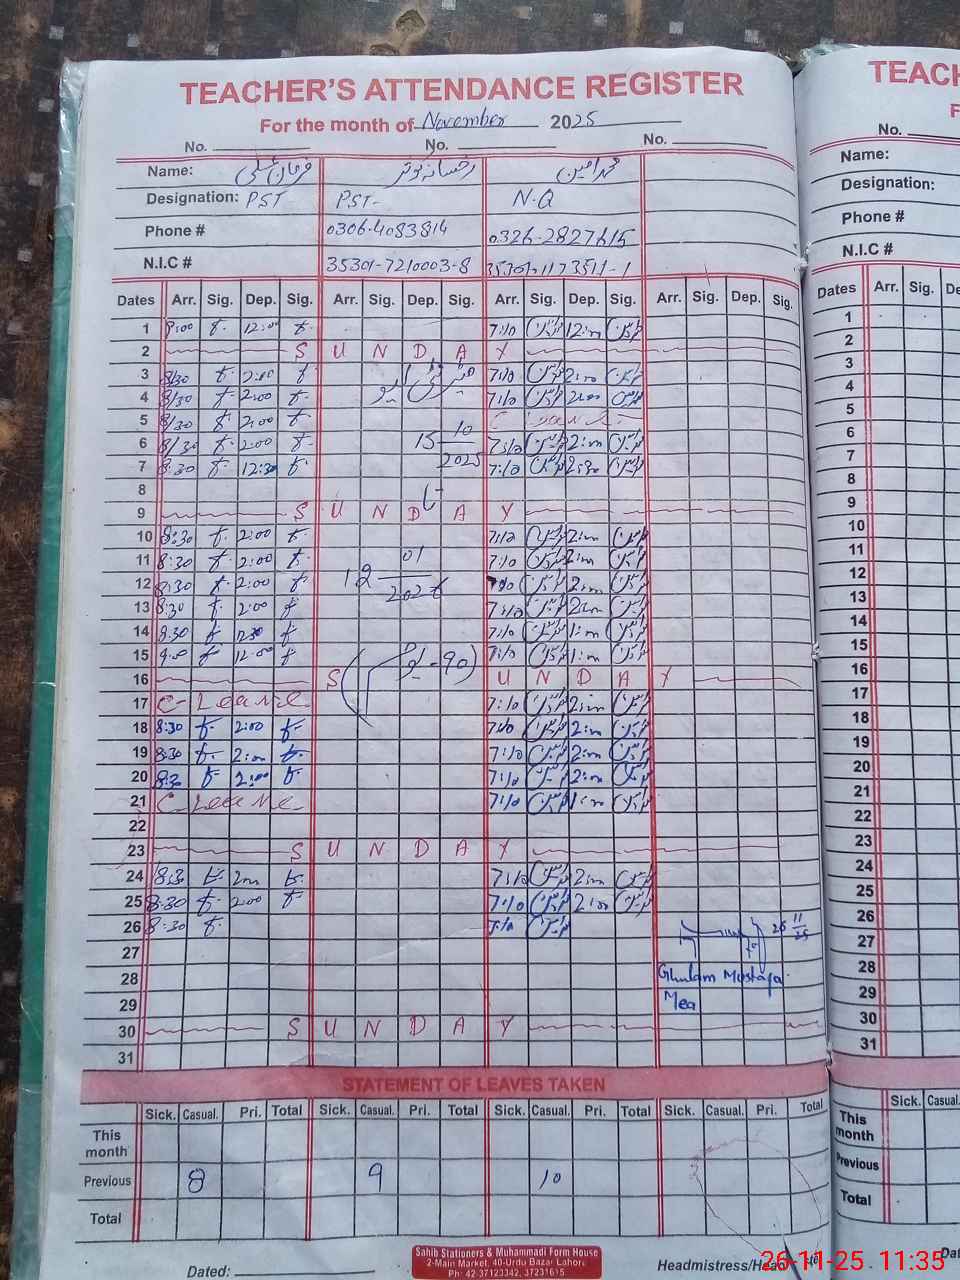 TEACHER'S ATTENDANCE REGISTER
For the month of November 2025
No. No. No.
Name: فرمان علی رخسانہ کوثر محمد امین
Designation: PST PST- N.Q
Phone # 0306-4083814 0326-2827615
N.I.C # 35301-7210003-8
Dates Arr. Sig. Dep. Sig. Arr. Sig. Dep. Sig. Arr. Sig. Dep. Sig. Arr. Sig. Dep. Sig.
1 9:00 12:00 7:10 12:00
2 S U N D A Y
3 8/30 2:00 7:10 2:00
4 8/30 2:00 7:10 2:00
5 8/30 2:00 C Leave
6 8/30 2:00 15 10 7:10 2:00
7 8:30 12:30 2025 7:10 12:30
8
9 S U N D A Y
10 8:30 2:00 7:10 2:00
11 8:30 2:00 01 7:10 2:00
12 8:30 2:00 12 2026 7:10 2:00
13 8:30 2:00 7:10 2:00
14 8:30 12:30 7:10 1:00
15 9:00 12:00 90 7:10 1:00
16 S U N D A Y
17 C-Leave 7:10 2:00
18 8:30 2:00 7:10 2:00
19 8:30 2:00 7:10 2:00
20 8:30 2:00 7:10 2:00
21 C-Leave 7:10 1:00
22
23 S U N D A Y
24 8:30 2:00 7:10 2:00
25 8:30 2:00 7:10 2:00
26 8:30 7:10 26 11 25
27
28 Ghulam Mustafa
29 Mea
30 S U N D A Y
31
STATEMENT OF LEAVES TAKEN
Sick. Casual. Pri. Total Sick. Casual. Pri. Total Sick. Casual. Pri. Total Sick. Casual. Pri. Total
This month
Previous 8 9 10
Total
Sahib Stationers & Muhammadi Form House
2-Main Market, 40-Urdu Bazar Lahore
Ph: 42-37123342, 37231615
Dated: Headmistress/Head
TEACH
F
No.
Name:
Designation:
Phone #
N.I.C #
Dates Arr. Sig. De
1
2
3
4
5
6
7
8
9
10
11
12
13
14
15
16
17
18
19
20
21
22
23
24
25
26
27
28
29
30
31
Sick. Casual.
This month
Previous
Total
Dat
26-11-25 11:35